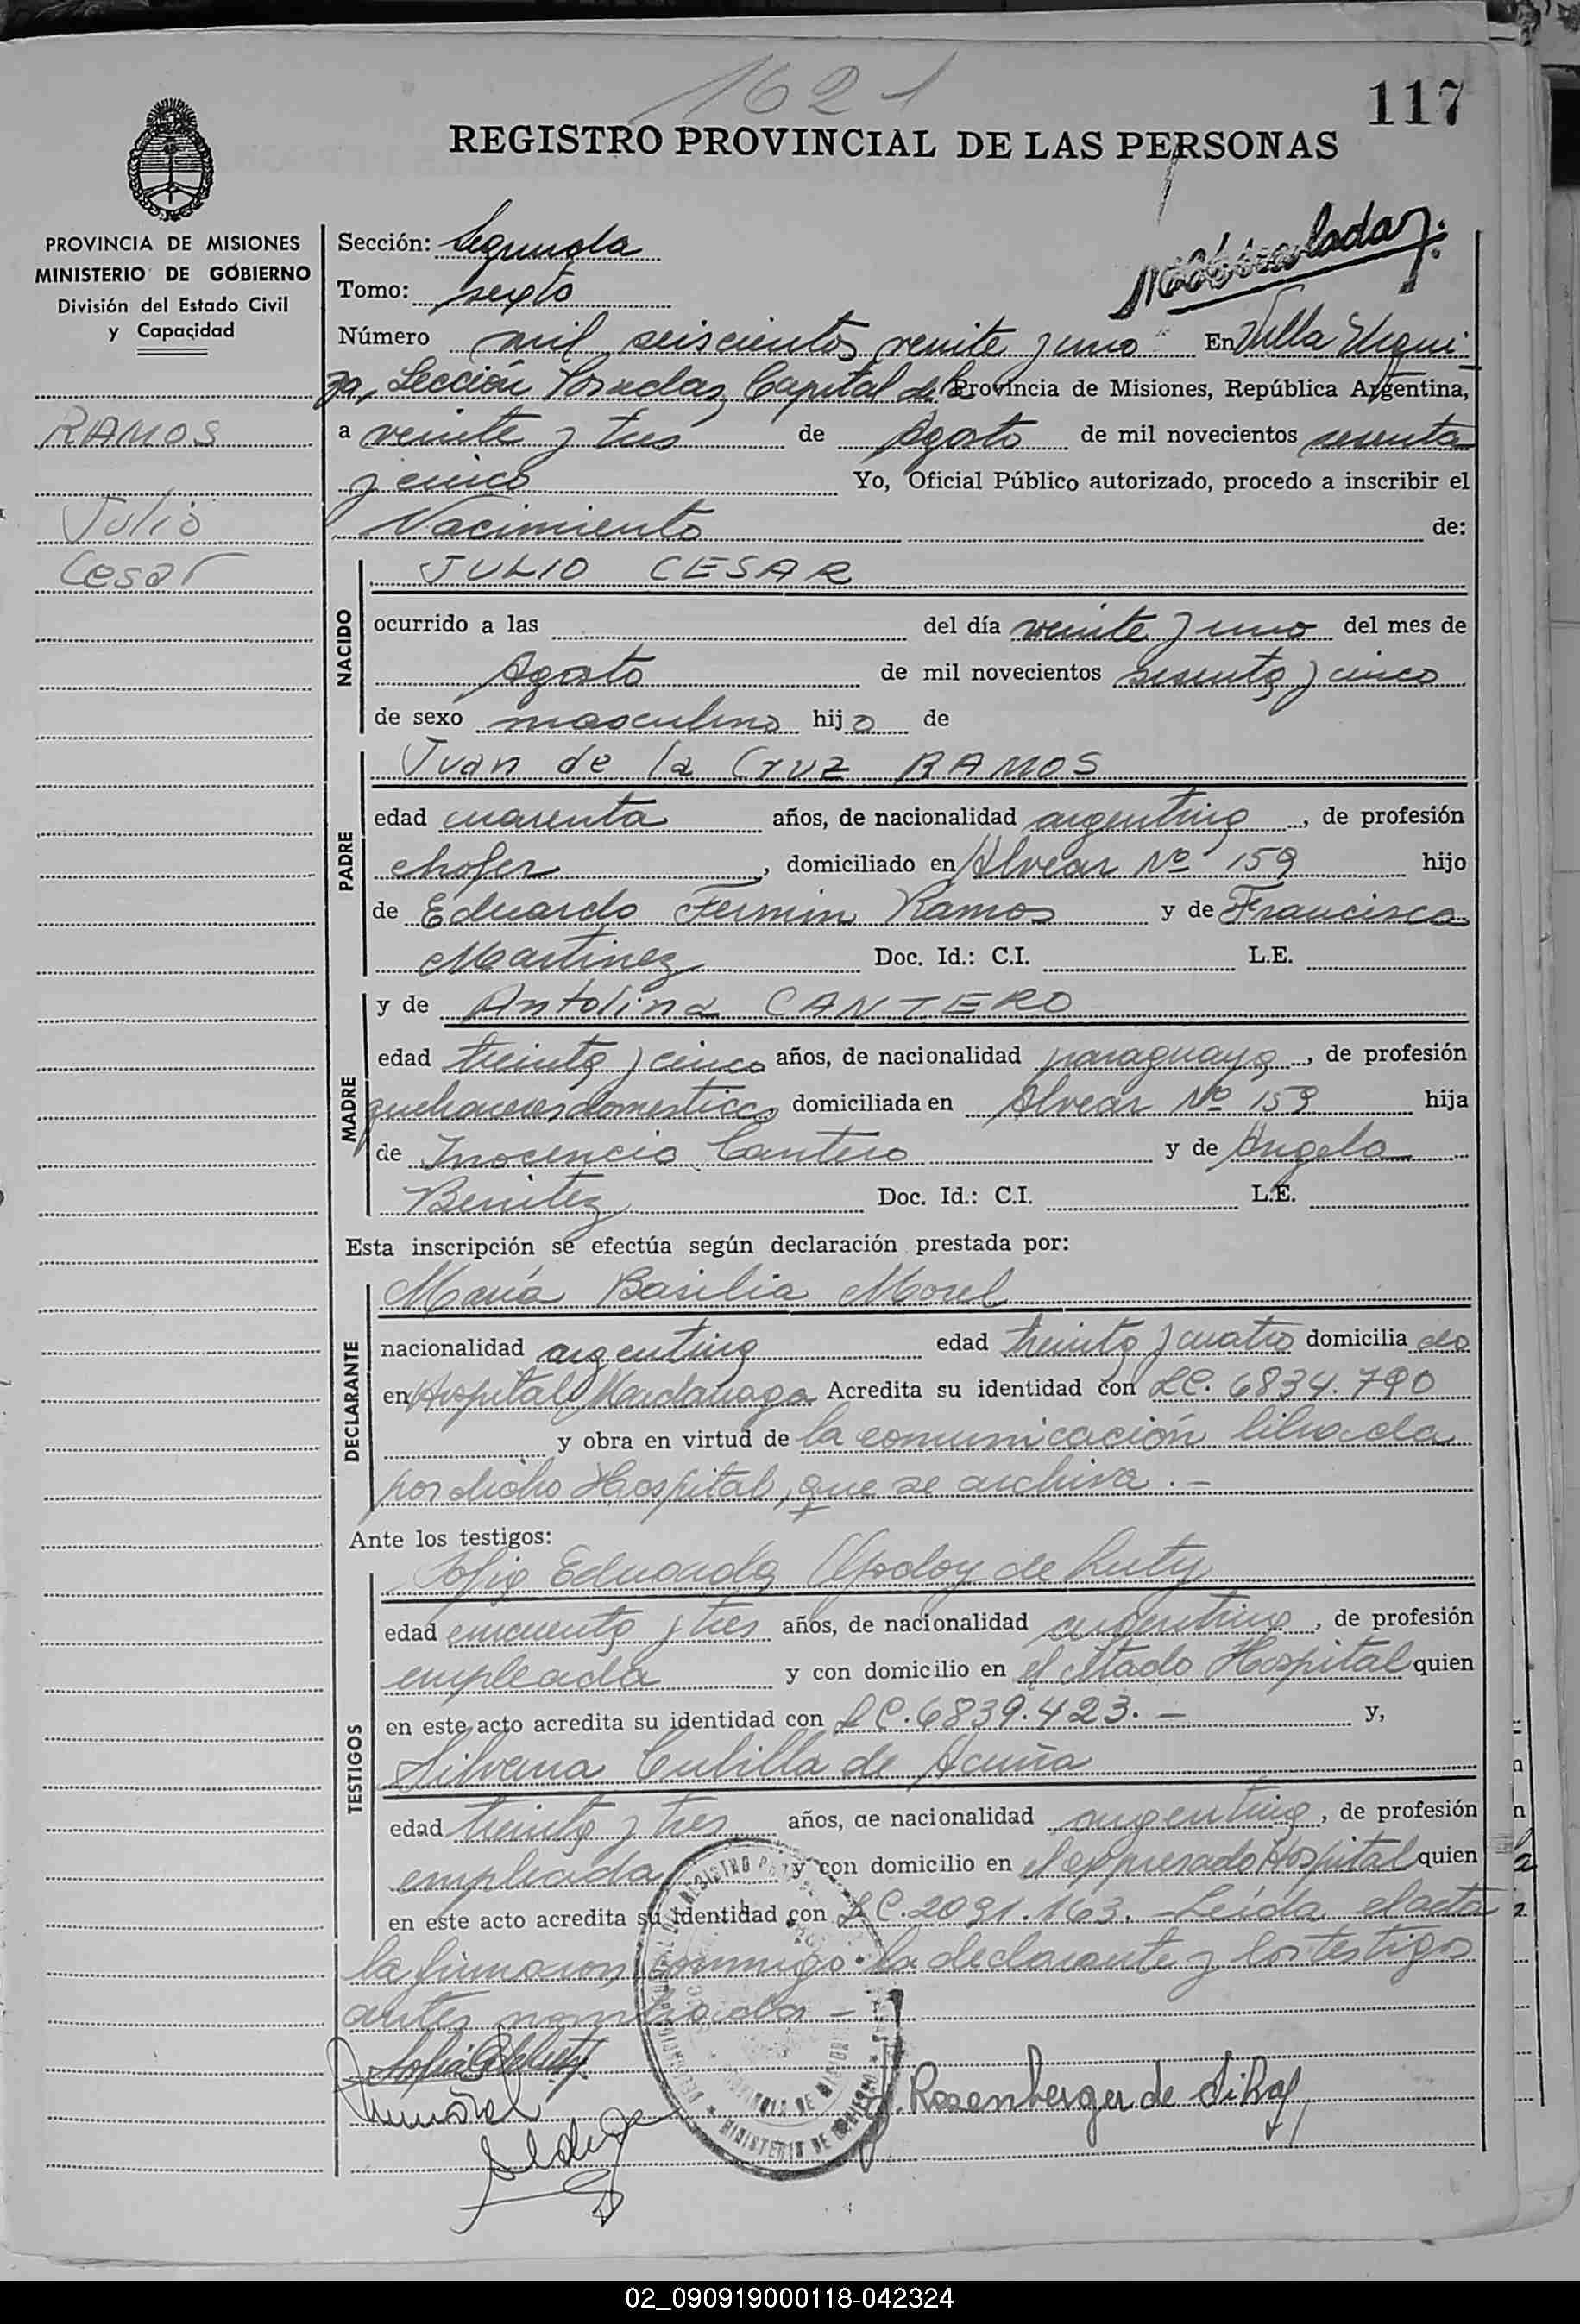 1621
117
REGISTRO PROVINCIAL DE LAS PERSONAS
PROVINCIA DE MISIONES
MINISTERIO DE GOBIERNO
División del Estado Civil
y Capacidad
RAMOS
Julio
Cesar
Sección: Segunda
Tomo: sexto
Número mil seiscientos veinte y uno En Villa Urqui
za, Sección Posadas, Capital de la Provincia de Misiones, República Argentina,
a veinte y tres de Agosto de mil novecientos sesenta
y cinco Yo, Oficial Público autorizado, procedo a inscribir el
Nacimiento de:
NACIDO
JULIO CESAR
ocurrido a las del día veinte y uno del mes de
Agosto de mil novecientos sesenta y cinco
de sexo masculino hijo de
PADRE
Juan de la Cruz RAMOS
edad cuarenta años, de nacionalidad argentina, de profesión
chofer, domiciliado en Alvear Nº 159 hijo
de Eduardo Fermin Ramos y de Francisca
Martinez Doc. Id.: C.I. L.E.
MADRE
y de Antolina CANTERO
edad treinta y cinco años, de nacionalidad paraguaya, de profesión
quehaceres domesticos domiciliada en Alvear Nº 159 hija
de Inocencio Cantero y de Angela
Benitez Doc. Id.: C.I. L.E.
Esta inscripción se efectúa según declaración prestada por:
DECLARANTE
María Basilia Morel
nacionalidad argentina edad treinta y cuatro domicilia da
en Hospital Madariaga Acredita su identidad con LC. 6834.790
y obra en virtud de la comunicación librada
por dicho Hospital, que se archiva.-
Ante los testigos:
TESTIGOS
Sofia Eduarda de Luty
edad cincuenta y tres años, de nacionalidad argentina, de profesión
empleada y con domicilio en el citado Hospital quien
en este acto acredita su identidad con LC. 6839.423.- y,
Silvana Cubilla de Acuña
edad treinta y tres años, de nacionalidad argentina, de profesión
empleada y con domicilio en el expresado Hospital quien
en este acto acredita su identidad con LC. 2091.163.- Leída el acta
la firmaron conmigo la declarante y los testigos
antes nombrados-
Rosenberger de Silva
MINISTERIO DE GOBIERNO
02_090919000118-042324